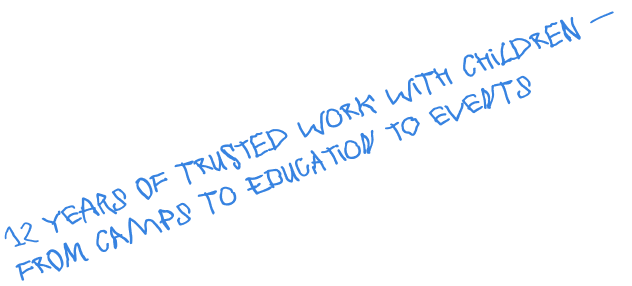 12 YEARS OF TRUSTED WORK WITH CHILDREN —
FROM CAMPS TO EDUCATION TO EVENTS